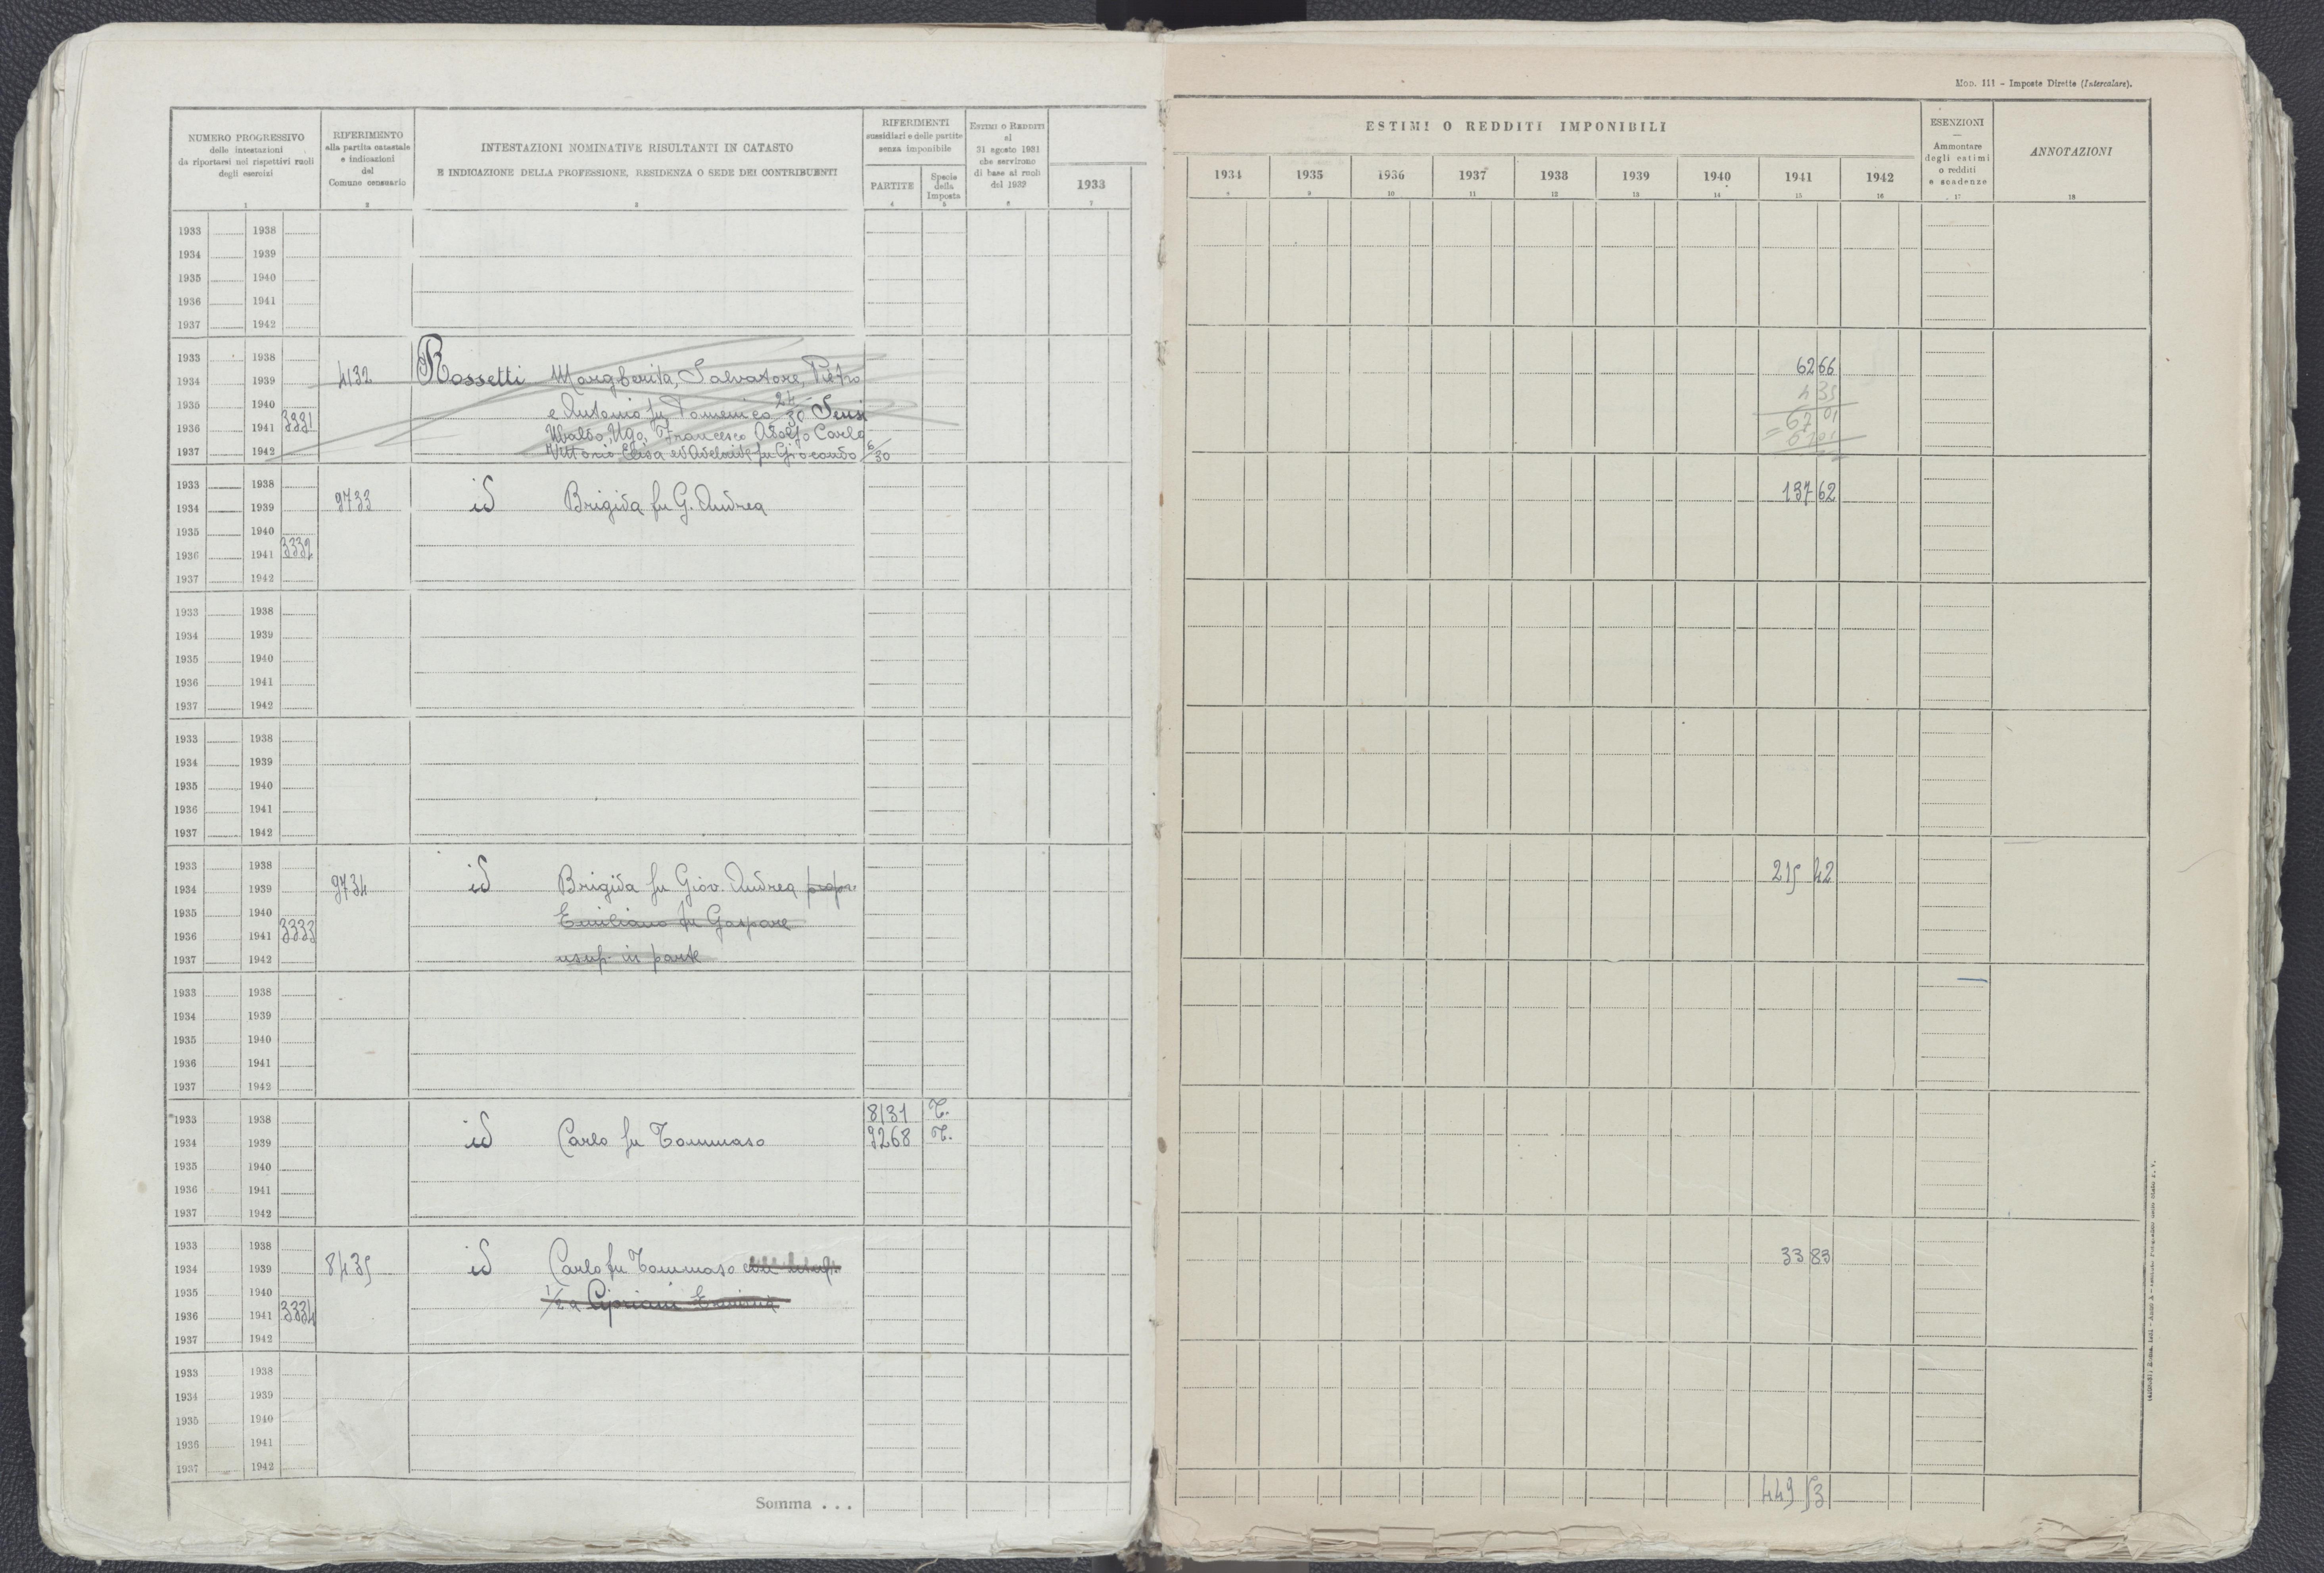 Mod. 111 - Imposte Dirette (Intercalare).
NUMERO PROGRESSIVO
delle intestazioni
da riportarsi nei rispettivi ruoli
degli esercizi
1
RIFERIMENTO
alla partita catastale
e indicazioni
del
Comune censuario
2
INTESTAZIONI NOMINATIVE RISULTANTI IN CATASTO
E INDICAZIONE DELLA PROFESSIONE, RESIDENZA O SEDE DEI CONTRIBUENTI
3
RIFERIMENTI
sussidiari e delle partite
senza imponibile
PARTITE
4
Specie
della
Imposta
5
ESTIMI O REDDITI
al
31 agosto 1931
che servirono
di base ai ruoli
del 1932
6
1933
7
ESTIMI O REDDITI IMPONIBILI
1934 1935 1936 1937 1938 1939 1940 1941 1942
8 9 10 11 12 13 14 15 16
ESENZIONI
—
Ammontare
degli estimi
o redditi
e scadenze
17
ANNOTAZIONI
18
1933 1938
1934 1939
1935 1940
1936 1941
1937 1942
1933 1938
1934 1939 4132 Rossetti Margherita, Salvatore, Pietro 62 66
1935 1940 e Antonio fu Domenico 24/30 Sensi 4 35
1936 1941 3331 Ubaldo, Ugo, Francesco Adolfo Carlo 67 01
1937 1942 Vittorio Elisa ed Adelaide fu Giocondo 6/30
1933 1938
1934 1939 9733 id Brigida fu G. Andrea 137 62
1935 1940
1936 1941 3332
1937 1942
1933 1938
1934 1939
1935 1940
1936 1941
1937 1942
1933 1938
1934 1939
1935 1940
1936 1941
1937 1942
1933 1938
1934 1939 9734 id Brigida fu Giov. Andrea propr. 215 42
1935 1940 Emiliano fu Gaspare
1936 1941 3333
1937 1942 usuf. in parte
1933 1938
1934 1939
1935 1940
1936 1941
1937 1942
1933 1938 8131 T.
1934 1939 id Carlo fu Tommaso 9268 T.
1935 1940
1936 1941
1937 1942
1933 1938
1934 1939 8435 id Carlo fu Tommaso 33 83
1935 1940 1/2 a Cipriani
1936 1941 3334
1937 1942
1933 1938
1934 1939
1935 1940
1936 1941
1937 1942
Somma . . . 449 53